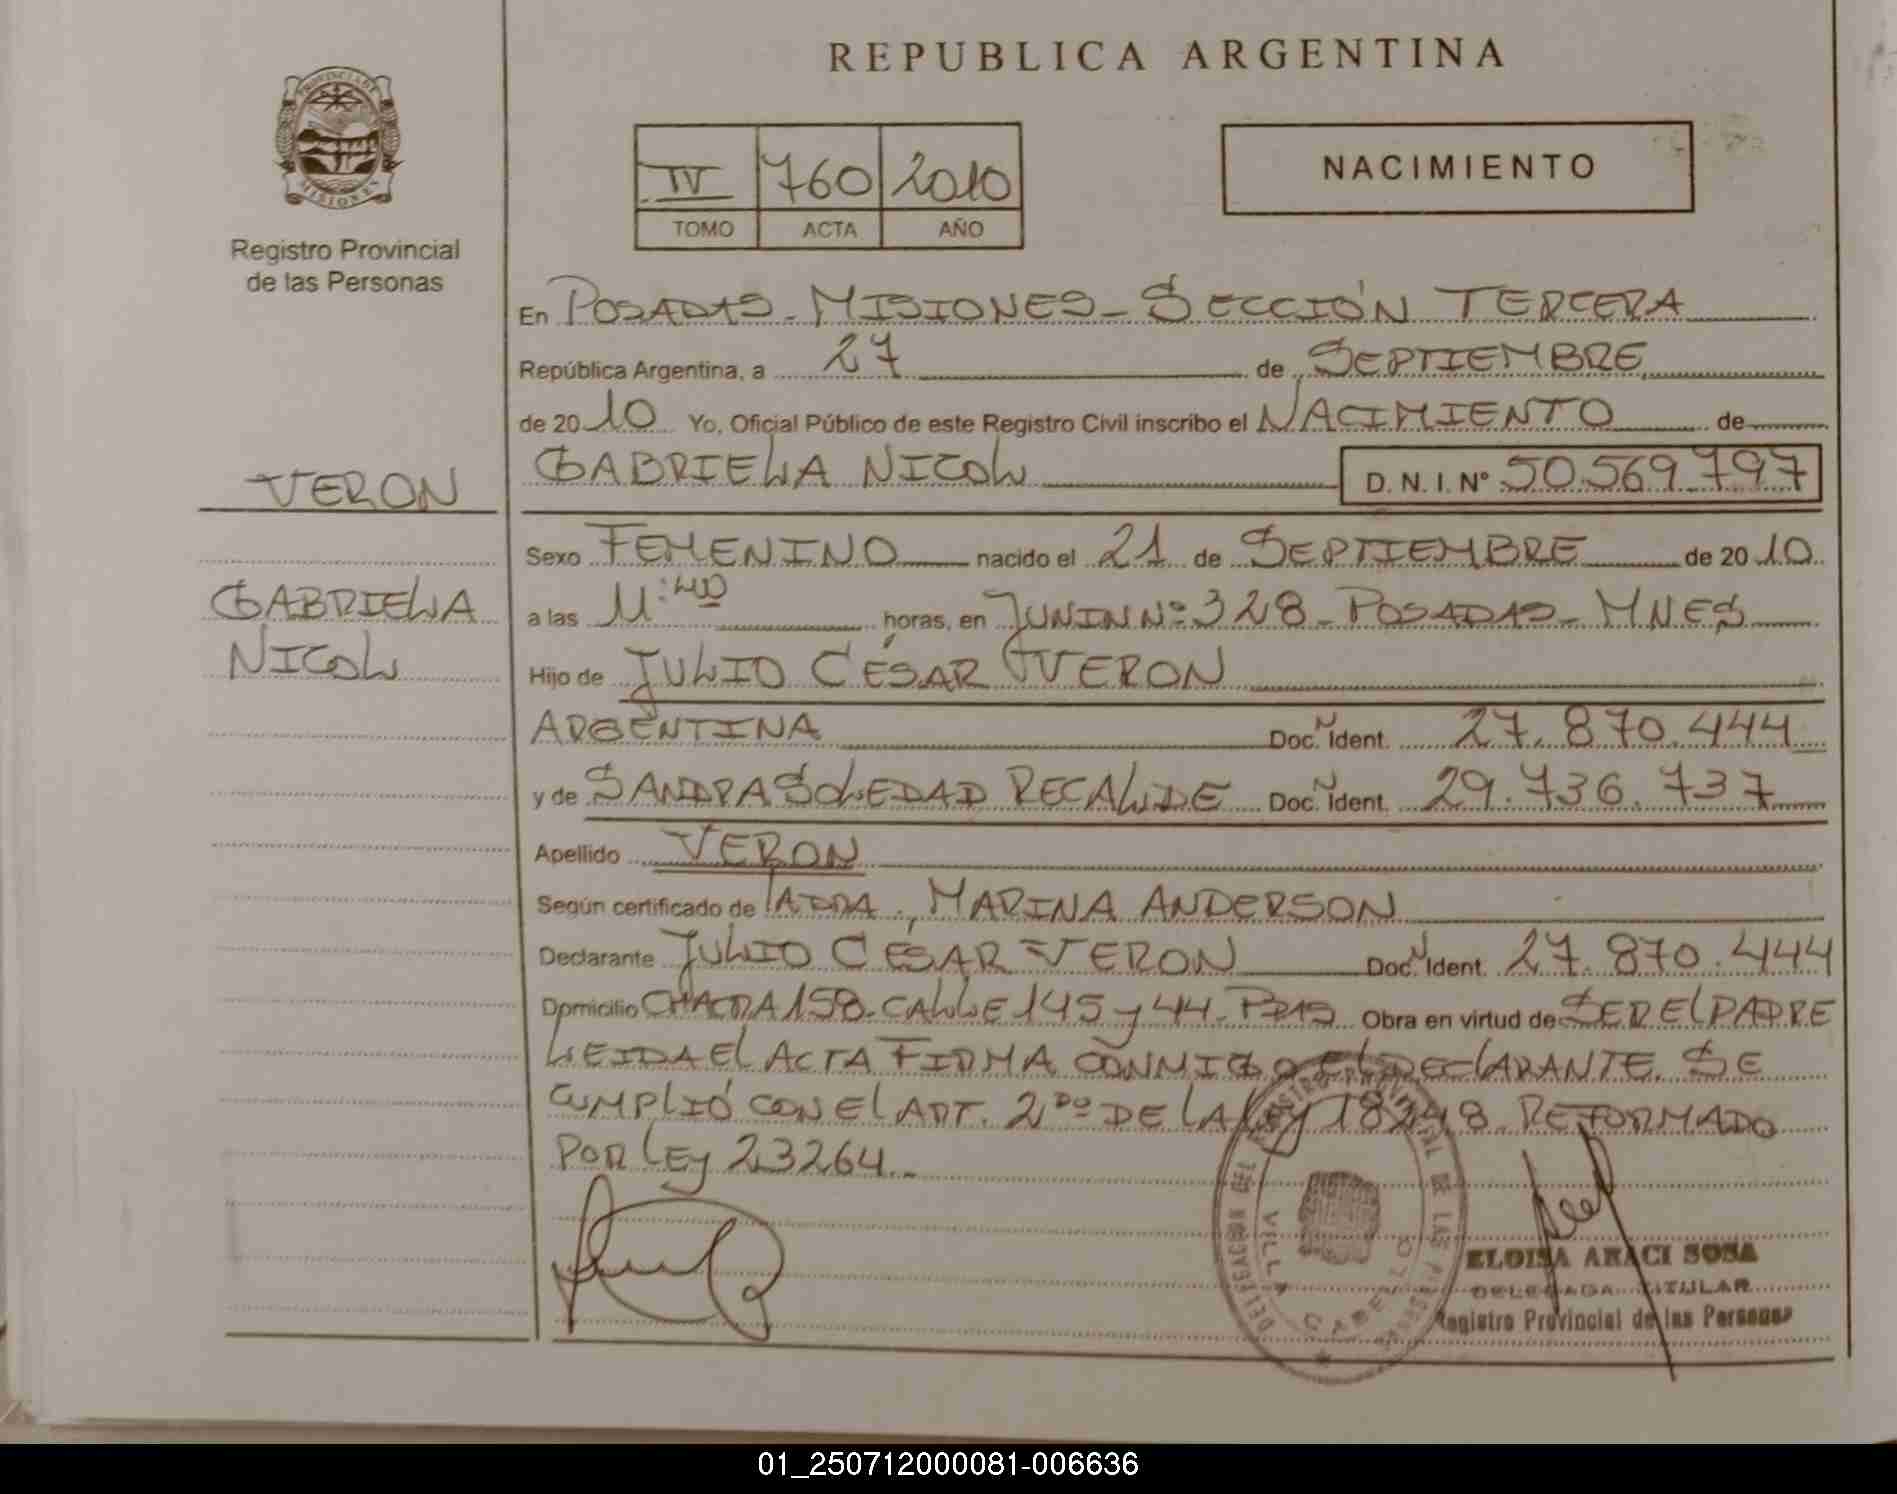 REPUBLICA ARGENTINA
PROVINCIA DE MISIONES
IV 760 2010
TOMO ACTA AÑO
NACIMIENTO
Registro Provincial
de las Personas
En POSADAS - MISIONES - SECCIÓN TERCERA
República Argentina, a 27 de SEPTIEMBRE
de 2010 Yo, Oficial Público de este Registro Civil inscribo el NACIMIENTO de
GABRIELA NICOL D. N. I. Nº 50.569.797
VERON
Sexo FEMENINO nacido el 21 de SEPTIEMBRE de 2010
GABRIELA
NICOL
a las 11:40 horas, en JUNIN Nº 328 - POSADAS - MNES
Hijo de JULIO CÉSAR VERON
ARGENTINA Doc. Ident. 27.870.444
y de SANDRA SOLEDAD RECALDE Doc. Ident. 29.736.737
Apellido VERON
Según certificado de LA DRA. MARINA ANDERSON
Declarante JULIO CÉSAR VERON Doc. Ident. 27.870.444
Domicilio CHACRA 158 - CALLE 145 y 44 - PDAS Obra en virtud de SER EL PADRE
LEIDA El ACTA FIRMA CONMIGO El DEClARANTE. SE
CUMPLIÓ CON El ART. 2do DE LA LEy 18248 REFORMADO
POR LEy 23264.-
DELEGACION DEL REGISTRO PROVINCIAL DE LAS PERSONAS
VILLA CABELLO
ELOISA ARACI SOSA
DELEGADA TITULAR
Registro Provincial de las Personas
01_250712000081-006636